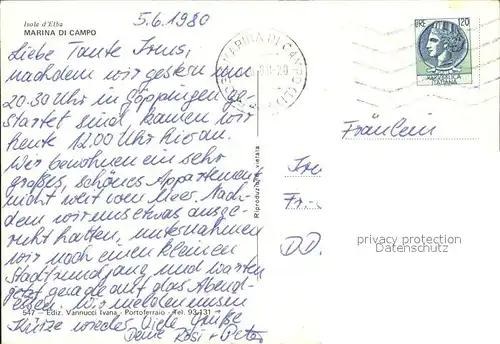 Isole d'Elba
MARINA DI CAMPO
5.6.1980
Liebe Tante Irms,
nachdem wir gestern um
20.30 Uhr in Göppingen ge-
startet sind, kamen wir
heute 12.00 Uhr hier an.
Wir bewohnen ein sehr
großes, schönes Appartement
nicht weit vom Meer. Nach-
dem wir uns etwas ausge-
ruht hatten, unternahmen
wir noch einen kleinen
Stadtrundgang und warten
jetzt gerade auf das Abend-
essen. Wir melden uns in
Kürze wieder. Viele Grüße
Deine Rosi + Peter
547 - Ediz. Vannucci Ivana - Portoferraio - Tel. 93.131
Riproduzione vietata
MARINA DI CAMPO
LIRE 120
REPUBBLICA
ITALIANA
Fräulein
Fr.
DD.
privacy protection
Datenschutz